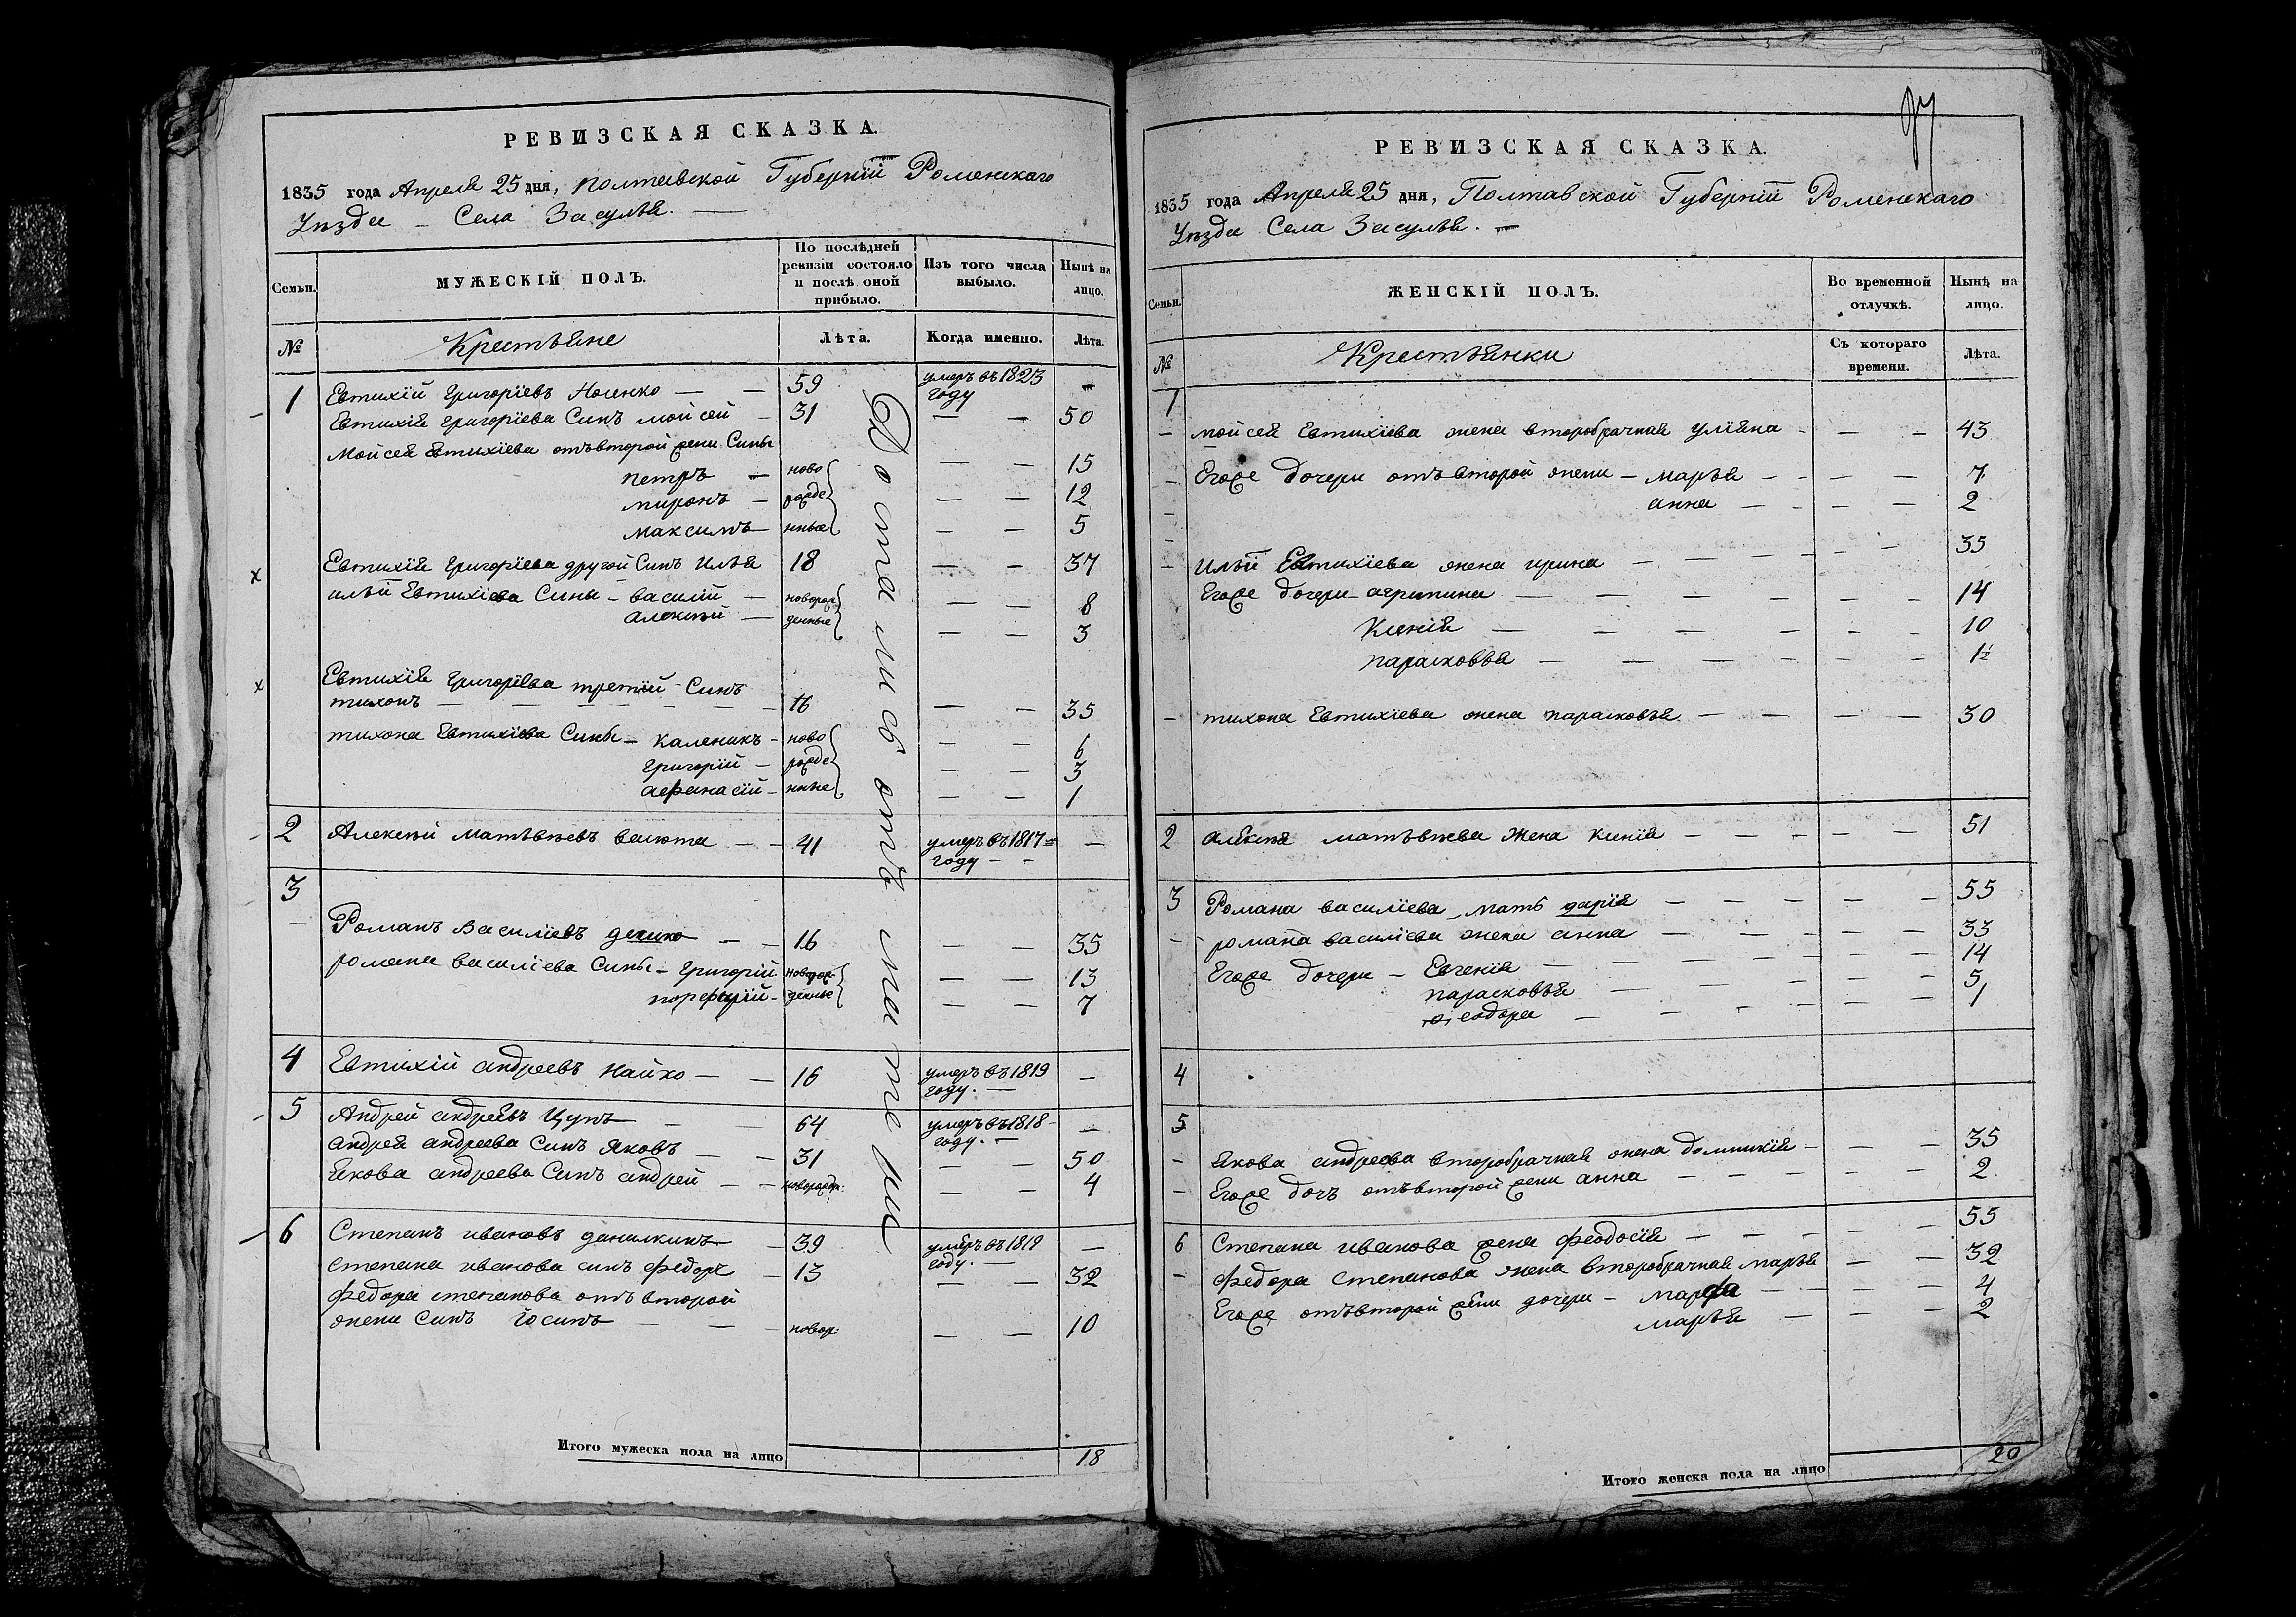 РЕВИЗСКАЯ СКАЗКА.
1835 года Апреля 25 дня, Полтавской Губерніи Роменскаго
Уѣзда – Села Засулья. —
Семьи.
МУЖЕСКІЙ ПОЛЪ.
По послѣдней ревизіи состояло и послѣ оной прибыло.
Изъ того числа выбыло.
Нынѣ на лицо.
№
Крестьяне
Лѣта.
Когда именно.
Лѣта.
1 Евтихій Григоріевъ Носенко — — 59 умеръ въ 1823 году —
Евтихія Григоріева Синъ мойсей – 31 — — 50
Мойсея Евтихіева отъ второй жени Сины
петръ — ново — — 15
миронъ — рожде — — 12
максимъ — нные — — 5
х Евтихія Григоріева другой Синъ Илья 18 — — 37
ильи Евтихіева Сины – василій — новорож — — 8
алексѣй — денные — — 3
х Евтихія Григоріева третій Синъ
тихонъ — — — — — — 16 — — 35
тихона Евтихіева Сины – каленикъ – ново — — 6
григорій — рожде — — 3
афанасій – нные — — 1
2 Алексѣй матвѣевъ валюта — – 41 умеръ въ 1817 году – – —
3
Романъ Василіевъ — – 16 — — 35
романа василіева Сины – григорій новорож — — 13
порфирій – денные — — 7
4 Евтихій андреевъ Найко — — 16 умеръ въ 1819 году. — —
5 Андрей андреевъ Цупъ — — 64 умеръ въ 1818 – году. — —
андрея андреева Синъ Яковъ — — 31 — — 50
Якова андреева Синъ андрей — — новорожд: — — 4
6 Степанъ ивановъ данилкинъ – 39 умеръ въ 1819 году. — —
степана иванова синъ федоръ — 13 — — 32
федора степанова отъ второй
жени Синъ Іосипъ — — – новор: — — 10
Достались отъ матери
Итого мужеска пола на лицо 18
РЕВИЗСКАЯ СКАЗКА.
1835 года Апреля 25 дня, Полтавской Губерніи Роменскаго
Уѣзда Села Засулья. —
Семьи.
ЖЕНСКІЙ ПОЛЪ.
Во временной отлучкѣ.
Нынѣ на лицо.
№
Крестьянки
Съ котораго времени.
Лѣта.
1
мойсея Евтихіева жена второбрачная уліяна – — – 43
Егоже дочери отъ второй жени – марья – – — — 7
анна — – – — 2
ильи Евтихіева жена ирина — — — – – – 35
Егоже дочери агрипина — — — — – – 14
Ксенія — — — – – – 10
парасковья — — — – – – 1½
тихона Евтихіева жена парасковья. — — — — — 30
2 алексѣя матвѣева Жена ксенія — – – — — 51
3 Романа василіева мать дарія — — – — — 55
романа василіева жена анна — — – – — — 33
Егоже дочери – Евгенія — — – – – — 14
парасковья — — – – — 5
ѳеодора — – – – – — 1
4
5
Якова андреева второбрачная жена домникія – — — 35
Егоже дочъ отъ второй жени анна — — – – — 2
6 Степана иванова жена феодосія — – – – — 55
федора степанова жена второбрачная марья — — 32
Егоже отъ второй жени дочери – марфа — – — 4
марья — – — 2
Итого женска пола на лицо 20